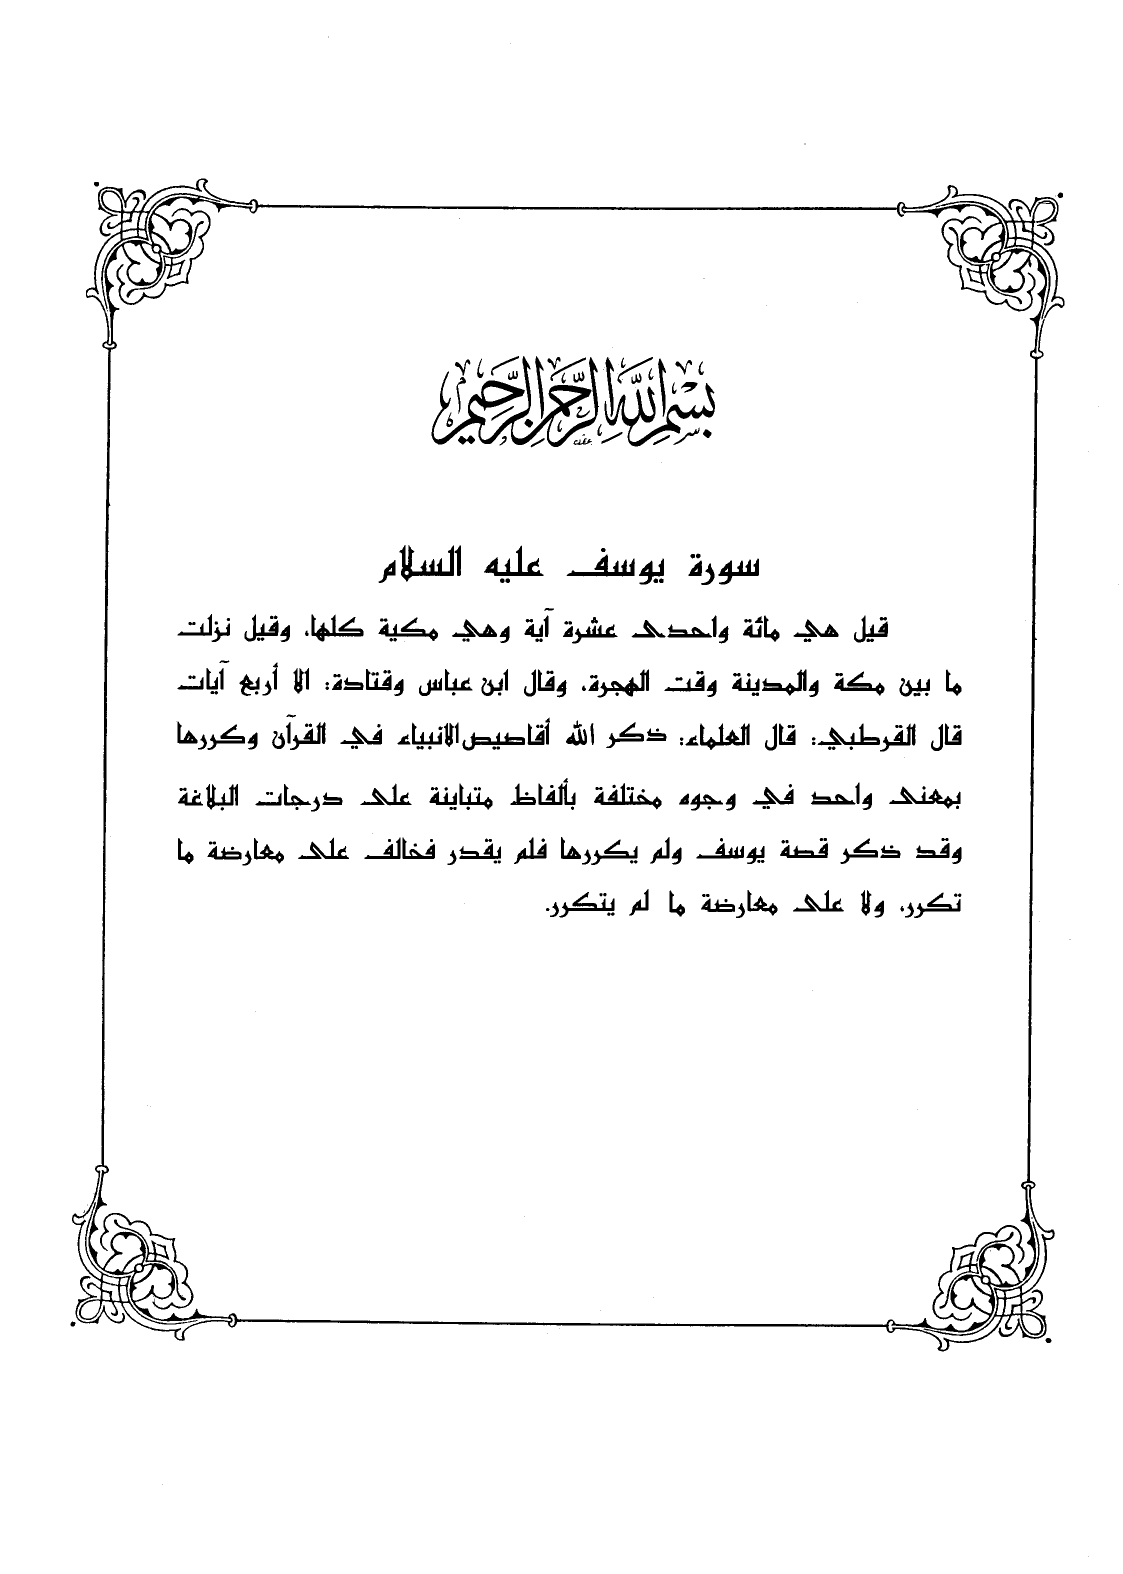 بسم الله الرحمن الرحيم
سورة يوسف عليه السلام
قيل هي مائة واحدى عشرة آية وهي مكية كلها، وقيل نزلت
ما بين مكة والمدينة وقت الهجرة، وقال ابن عباس وقتادة: الا أربع آيات
قال القرطبي: قال العلماء: ذكر الله أقاصيص الانبياء في القرآن وكررها
بمعنى واحد في وجوه مختلفة بألفاظ متباينة على درجات البلاغة
وقد ذكر قصة يوسف ولم يكررها فلم يقدر فخالف على معارضة ما
تكرر، ولا على معارضة ما لم يتكرر.